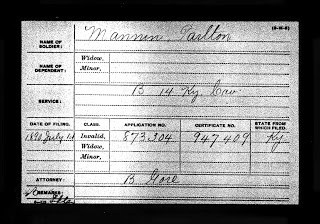 (3-M-6)
NAME OF SOLDIER: Mannin, Tarlton
NAME OF DEPENDENT: Widow,
Minor,
SERVICE: B 14 Ky Cav.
DATE OF FILING. CLASS. APPLICATION NO. CERTIFICATE NO. STATE FROM WHICH FILED.
1890 July 14 Invalid, 873.304 947409 Ky
Widow,
Minor,
ATTORNEY: B Gose
REMARKS: